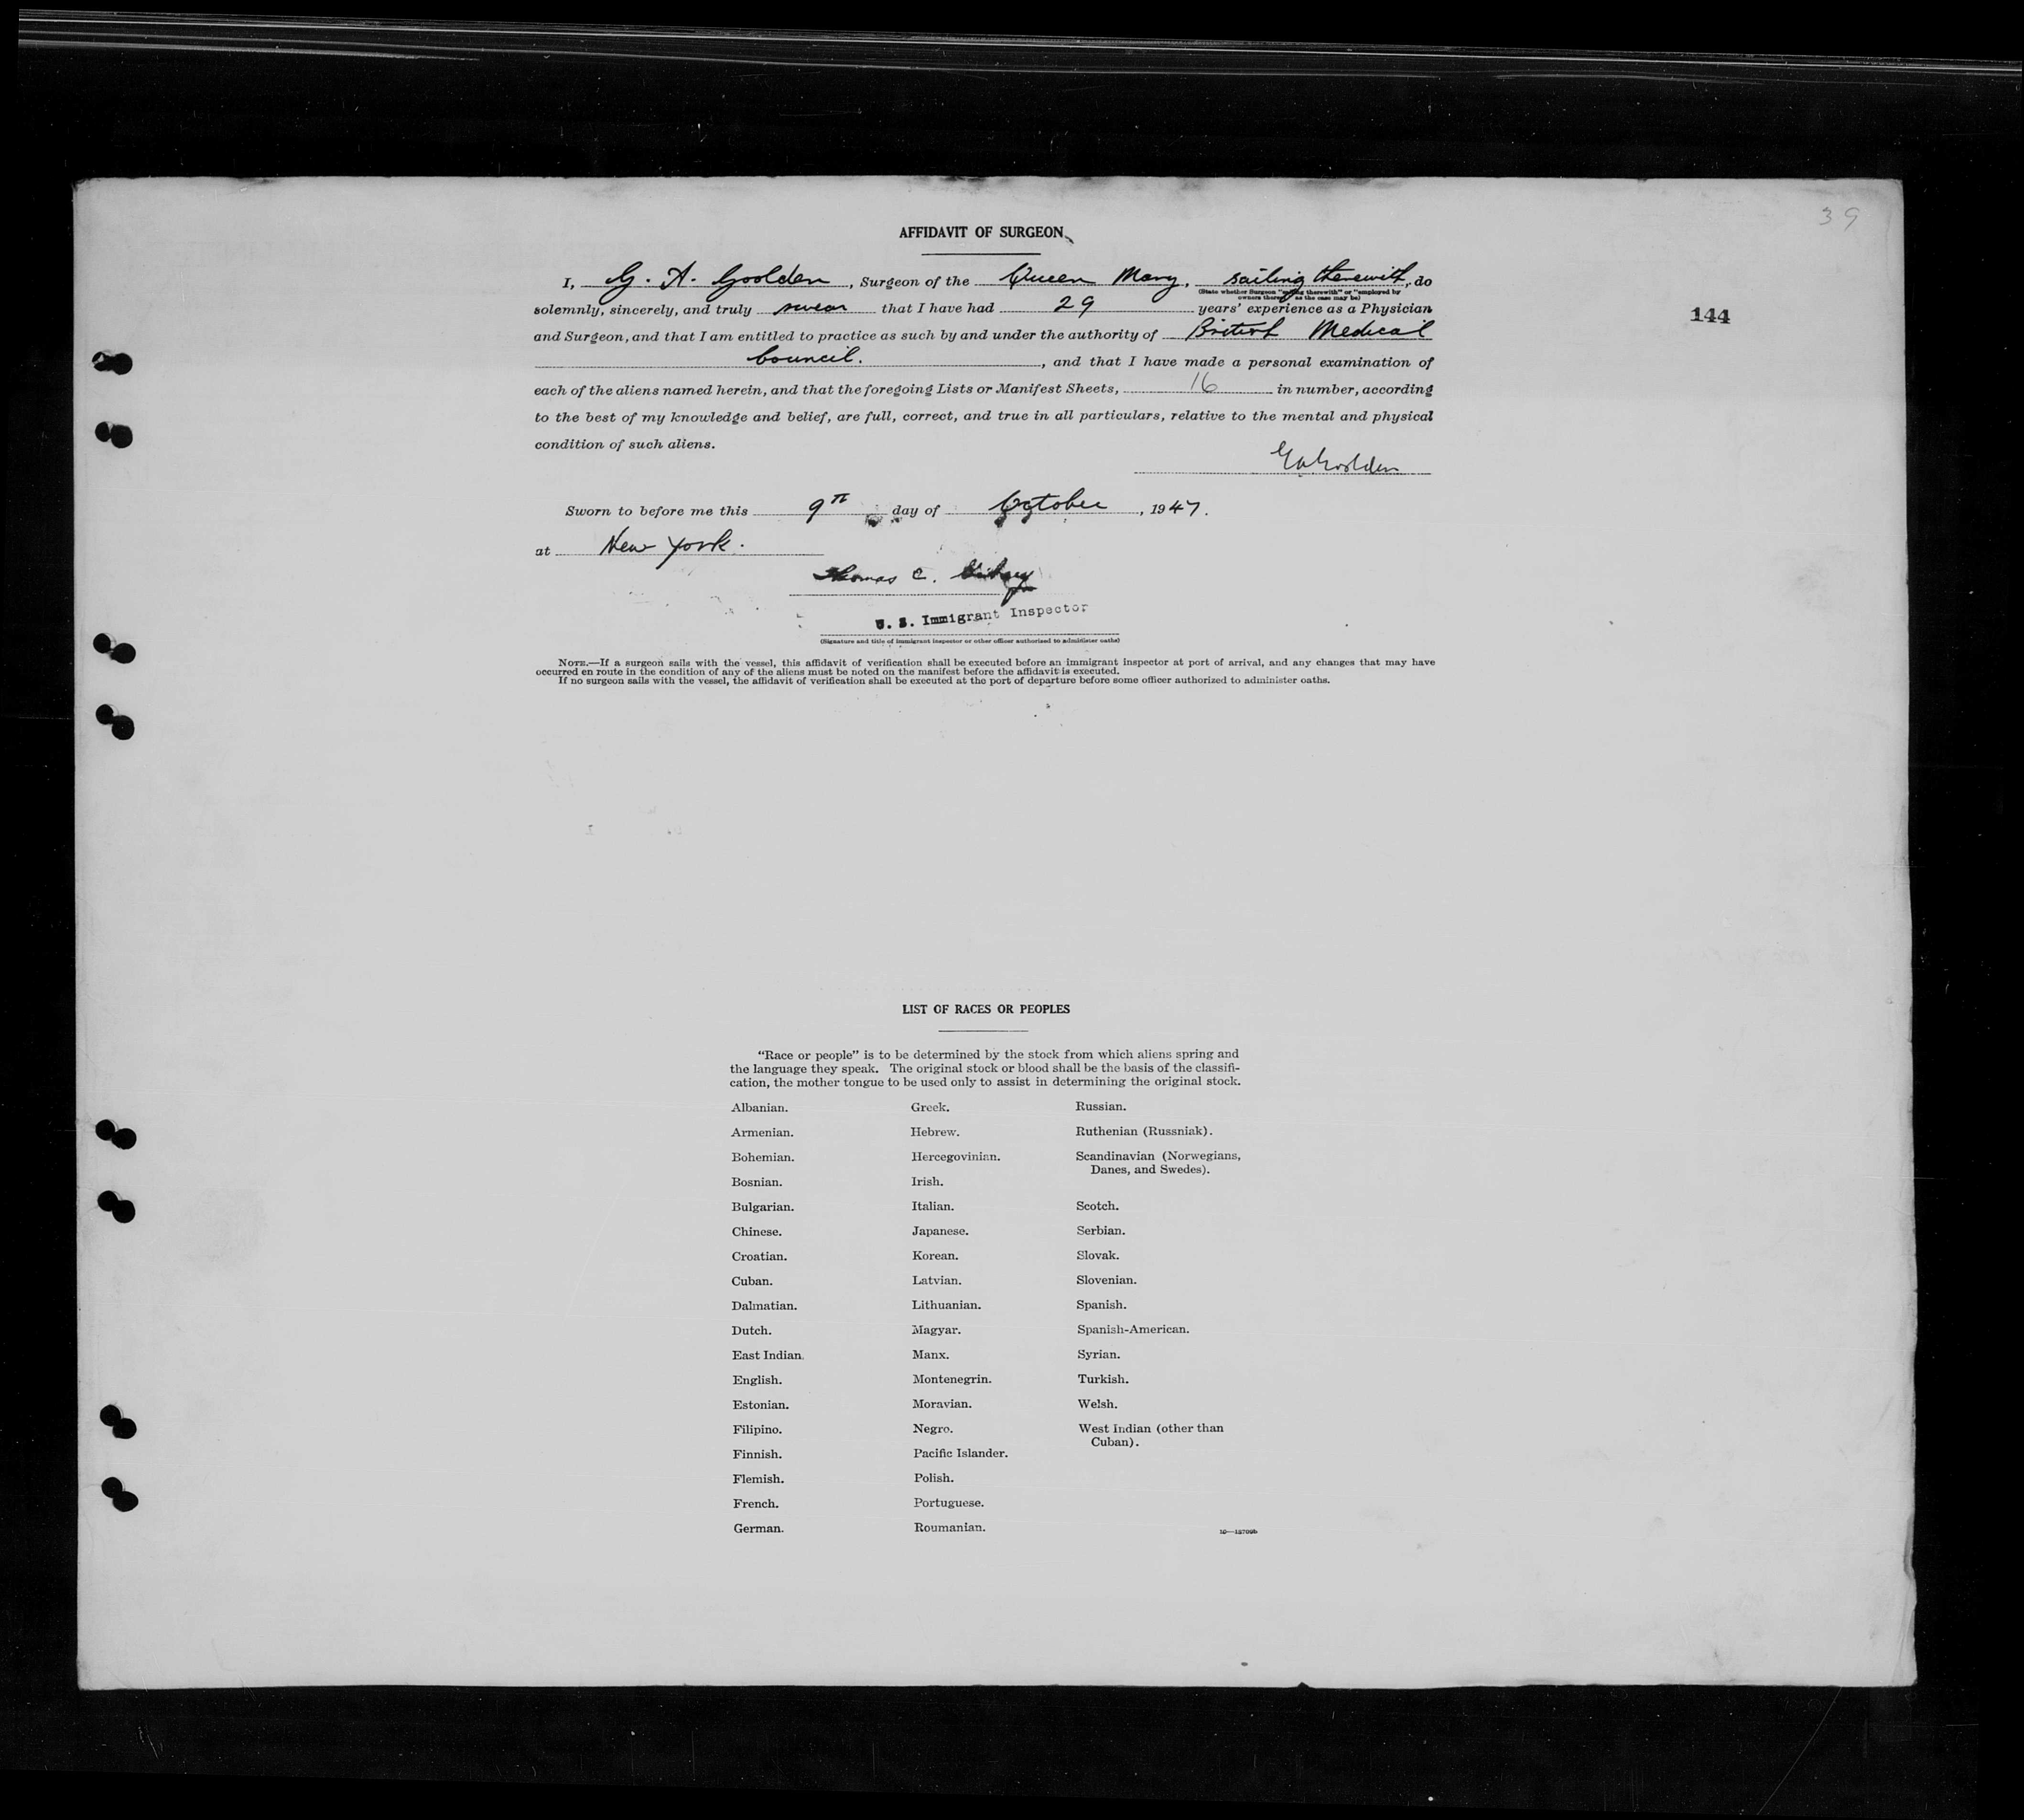 39
AFFIDAVIT OF SURGEON
I, G. A. Goolden, Surgeon of the Queen Mary, sailing therewith, do
(State whether Surgeon "sailing therewith" or "employed by
owners thereof," as the case may be)
solemnly, sincerely, and truly swear that I have had 29 years' experience as a Physician
144
and Surgeon, and that I am entitled to practice as such by and under the authority of British Medical
Council., and that I have made a personal examination of
each of the aliens named herein, and that the foregoing Lists or Manifest Sheets, 16 in number, according
to the best of my knowledge and belief, are full, correct, and true in all particulars, relative to the mental and physical
condition of such aliens.
GAGoolden
Sworn to before me this 9th day of October, 1947.
at New York.
Thomas C.
U. S. Immigrant Inspector
(Signature and title of immigrant inspector or other officer authorized to administer oaths)
NOTE.—If a surgeon sails with the vessel, this affidavit of verification shall be executed before an immigrant inspector at port of arrival, and any changes that may have
occurred en route in the condition of any of the aliens must be noted on the manifest before the affidavit is executed.
If no surgeon sails with the vessel, the affidavit of verification shall be executed at the port of departure before some officer authorized to administer oaths.
LIST OF RACES OR PEOPLES
"Race or people" is to be determined by the stock from which aliens spring and
the language they speak. The original stock or blood shall be the basis of the classifi-
cation, the mother tongue to be used only to assist in determining the original stock.
Albanian.
Armenian.
Bohemian.
Bosnian.
Bulgarian.
Chinese.
Croatian.
Cuban.
Dalmatian.
Dutch.
East Indian.
English.
Estonian.
Filipino.
Finnish.
Flemish.
French.
German.
Greek.
Hebrew.
Hercegovinian.
Irish.
Italian.
Japanese.
Korean.
Latvian.
Lithuanian.
Magyar.
Manx.
Montenegrin.
Moravian.
Negro.
Pacific Islander.
Polish.
Portuguese.
Roumanian.
Russian.
Ruthenian (Russniak).
Scandinavian (Norwegians,
Danes, and Swedes).
Scotch.
Serbian.
Slovak.
Slovenian.
Spanish.
Spanish-American.
Syrian.
Turkish.
Welsh.
West Indian (other than
Cuban).